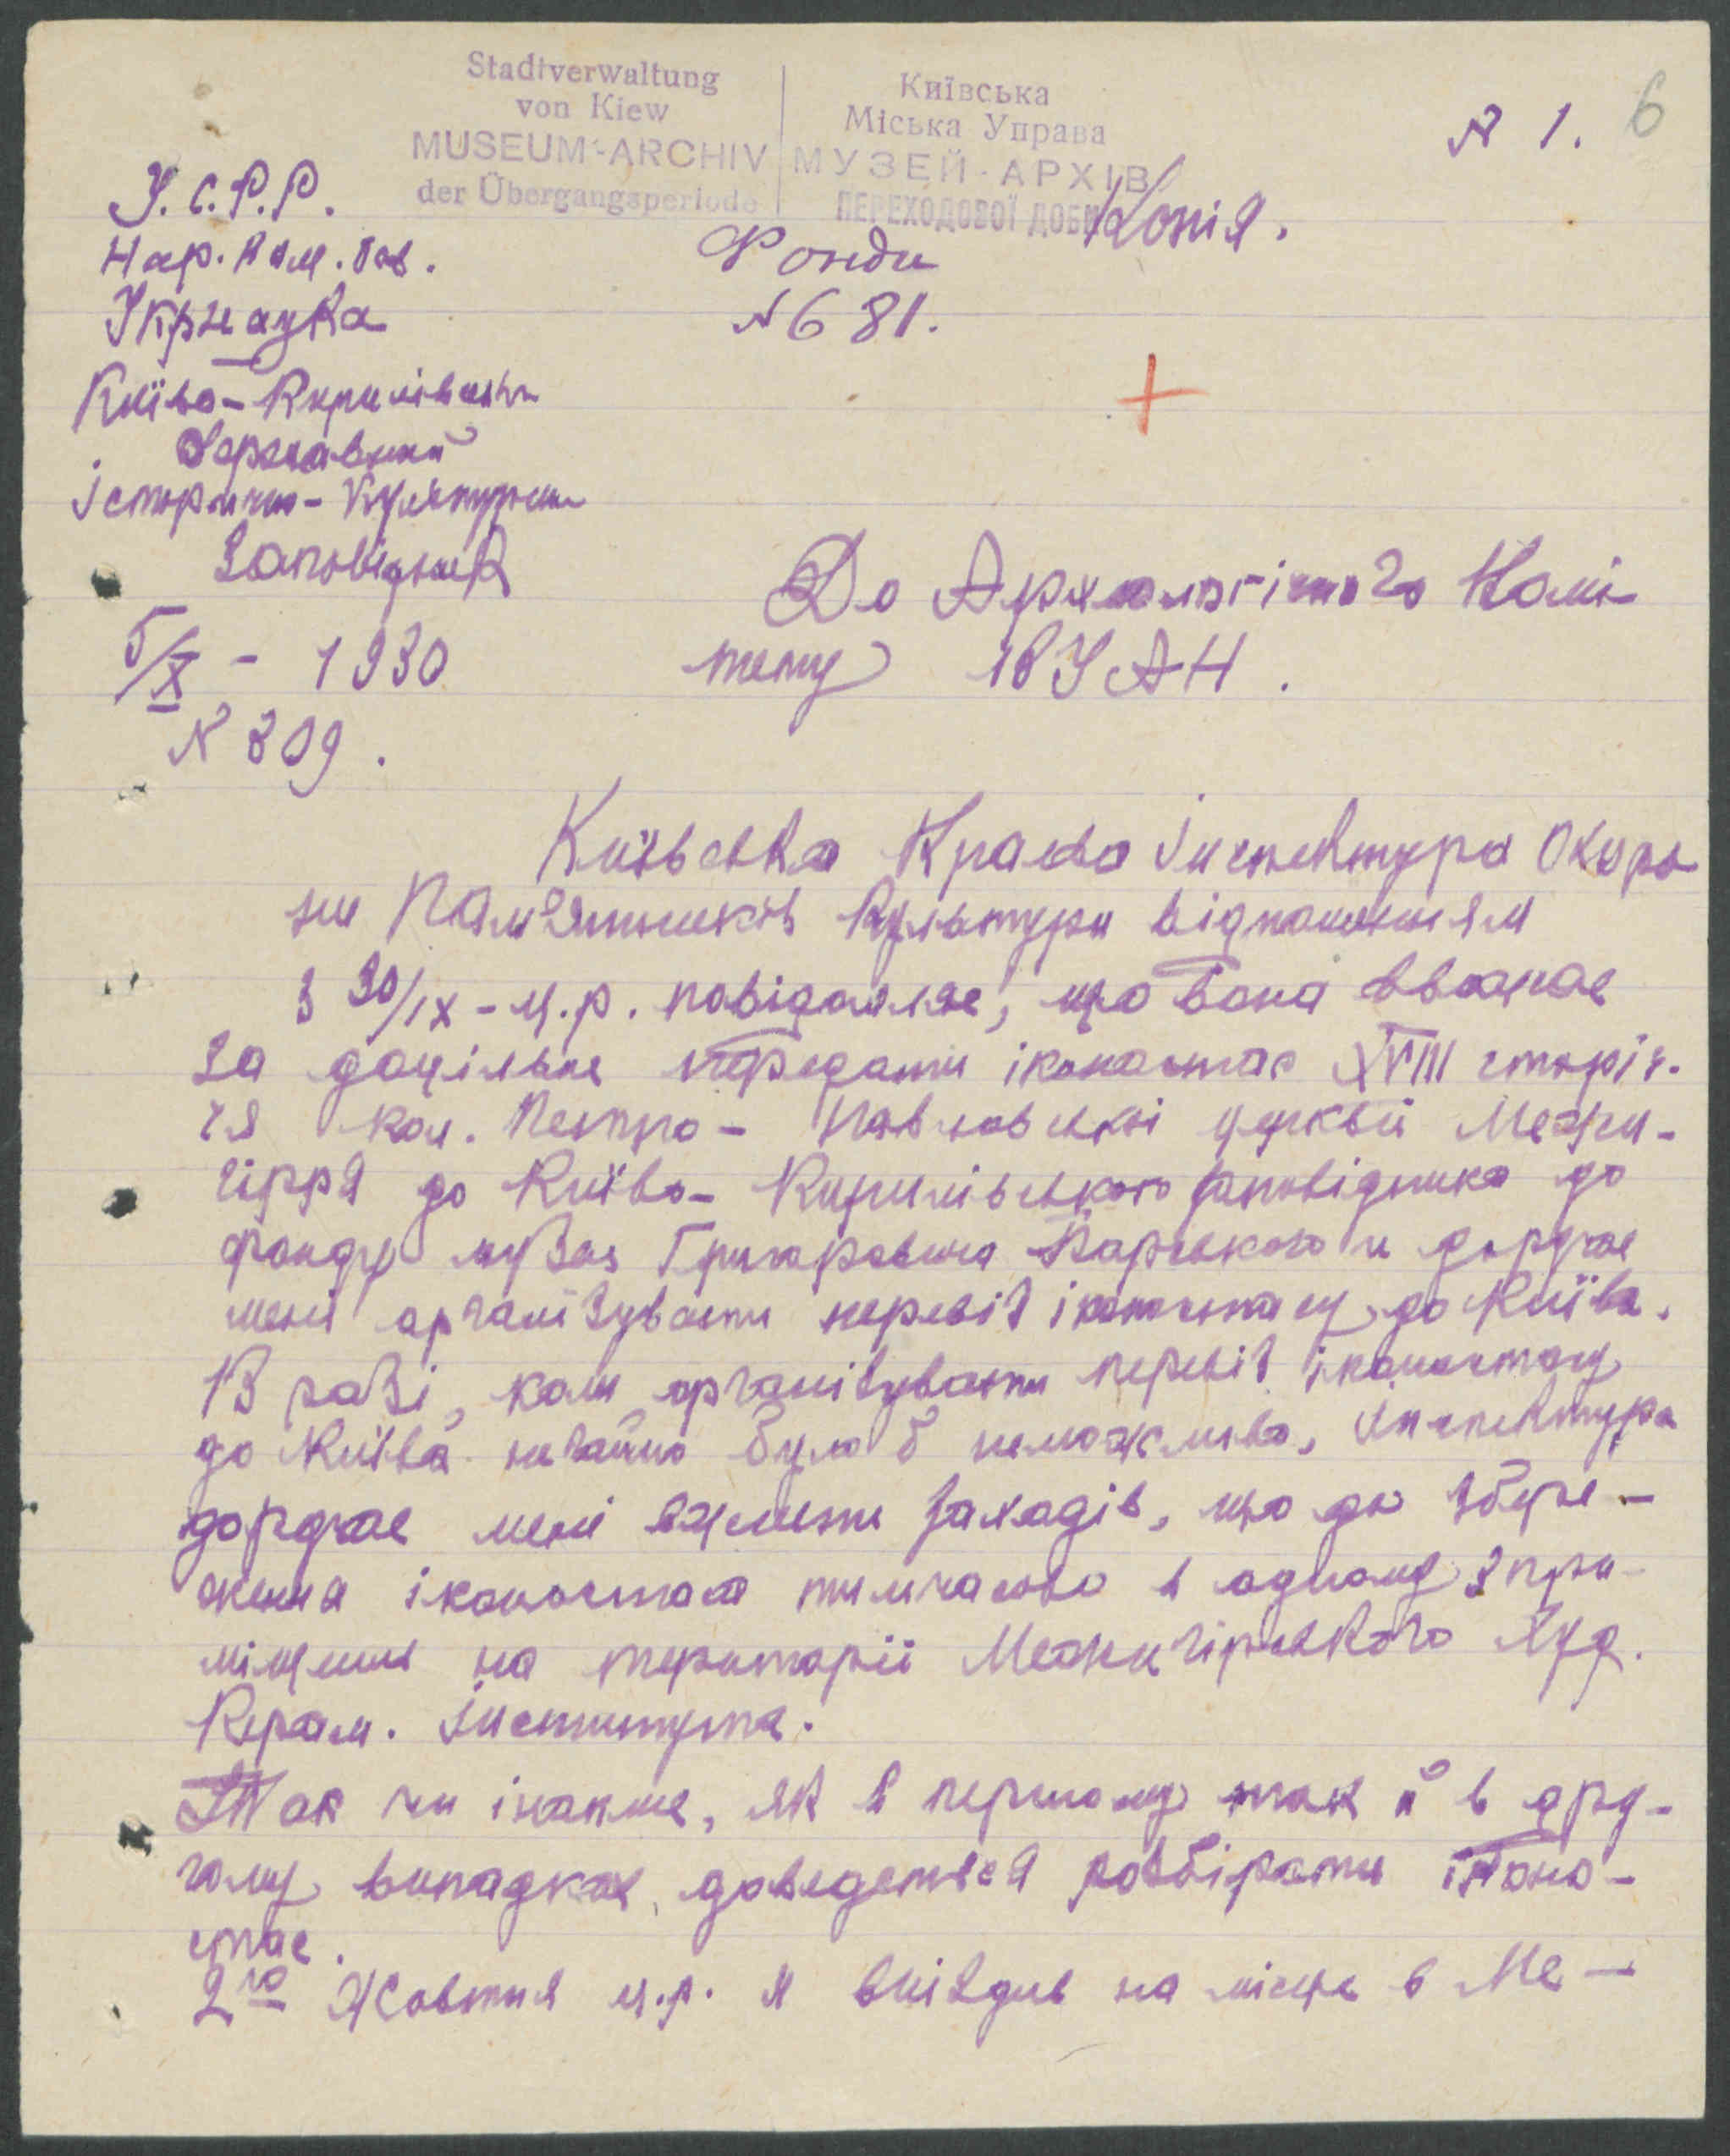 Stadtverwaltung
von Kiew
MUSEUM-ARCHIV
der Übergangsperiode
Київська
Міська Управа
МУЗЕЙ-АРХІВ
ПЕРЕХОДОВОЇ ДОБИ
N 1. 6
Копія.
Фонди
N 681.
У.С.Р.Р.
Нар. Ком. Осв.
Укрнаука
Київо-Кирилівський
Державний
Історично-Культурний
Заповідник
5/X - 1930
N 309.
До Археологічного Комі-
тету ВУАН.
Київська Краєва Інспектура Охоро
ни Пам'ятників Культури відношенням
з 30/IX - ц.р. повідомляє, що вона вважає
за доцільне передати іконостас XVIII сторіч-
чя кол. Петро-Павловської церкви Межи-
гірря до Київо-Кирилівського заповідника до
фонду музея Григоровича Барського и доручає
мені организувати перевіз іконостасу до Київа.
В разі, коли организувати перевіз іконостасу
до Київа негайно було б неможливо, Інспектура
доручає мені вжити заходів, що до збере-
ження іконостаса тимчасово в одному з при-
міщень на території Межигірського Худ.
Керам. Інститута.
Так чи інакше, як в першому так й в дру-
гому випадках, доведеться розбірати іконо-
стас.
2го Жовтня ц.р. я виїздив на місце в Ме-